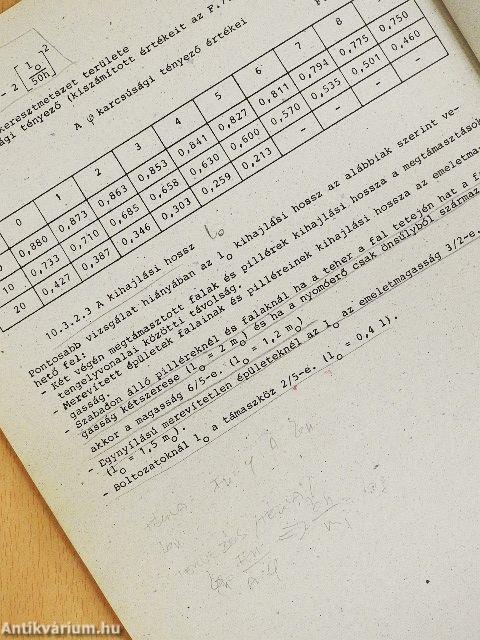 - 2 [l₀/50h]²
keresztmetszet területe
ági tényező (kiszámított értékeit az F.
A φ karcsúsági tényező értékei
0 1 2 3 4 5 6 7 8
0,880 0,873 0,863 0,853 0,841 0,827 0,811 0,794 0,775 0,750
10 0,733 0,710 0,685 0,658 0,630 0,600 0,570 0,535 0,501 0,460
20 0,427 0,387 0,346 0,303 0,259 0,213 - - - -
10.3.2.3 A kihajlási hossz l₀
Pontosabb vizsgálat hiányában az l₀ kihajlási hossz az alábbiak szerint ve-
hető fel.
- Két végén megtámasztott falak és pillérek kihajlási hossza a megtámasztások
tengelyvonalai közötti távolság.
- Merevített épületek falainak és pilléreinek kihajlási hossza az emeletma-
gasság.
- Szabadon álló pilléreknél és falaknál ha a teher a fal tetején hat a
gasság kétszerese (l₀ = 2 m₀) és ha a nyomóerő csak önsúlyból származ
akkor a magasság 6/5-e. (l₀ = 1,2 m₀)
- Egynyílású merevítetlen épületeknél az l₀ az emeletmagasság 3/2-e.
(l₀ = 1,5 m₀).
- Boltozatoknál l₀ a támaszköz 2/5-e. (l₀ = 0,4 l).
Antikvárium.hu